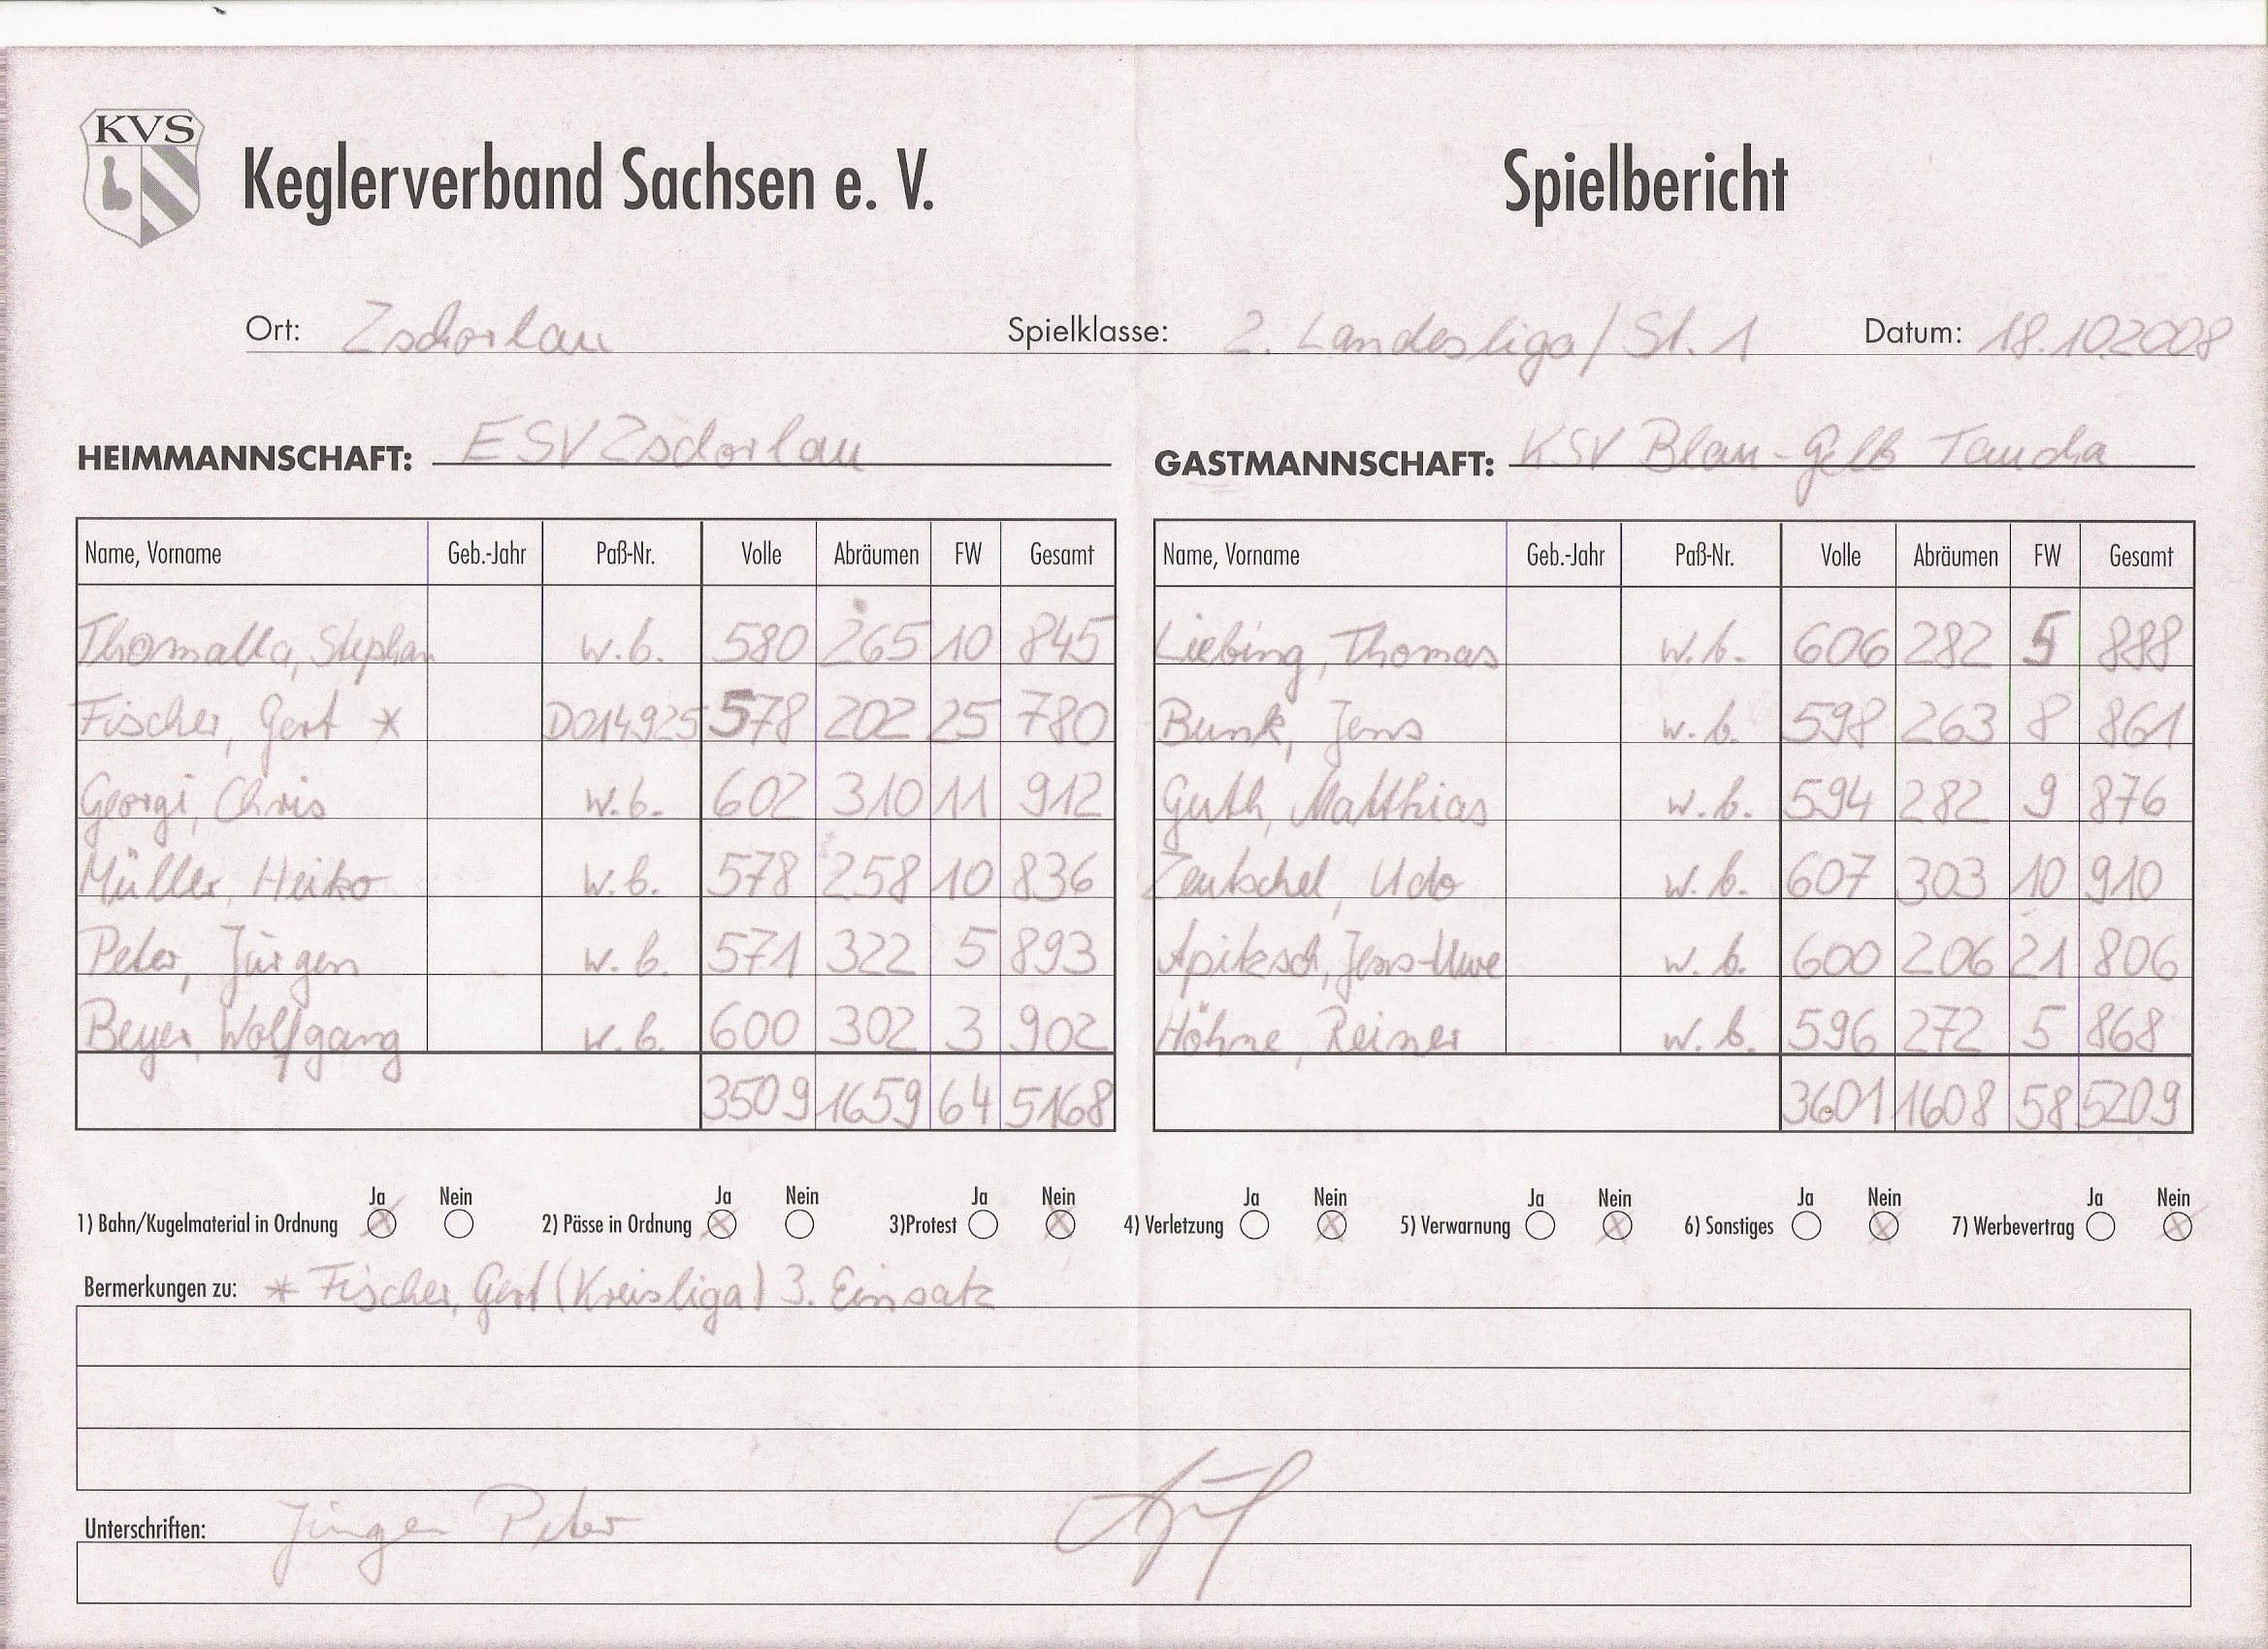 KVS
Keglerverband Sachsen e. V. Spielbericht
Ort: Zschorlau Spielklasse: 2. Landesliga/St. 1 Datum: 18.10.2008
HEIMMANNSCHAFT: ESV Zschorlau GASTMANNSCHAFT: KSV Blau-Gelb Taucha
Name, Vorname Geb.-Jahr Paß-Nr. Volle Abräumen FW Gesamt Name, Vorname Geb.-Jahr Paß-Nr. Volle Abräumen FW Gesamt
Thomalla, Stephan w.b. 580 265 10 845 Liebing, Thomas w.b. 606 282 5 888
Fischer, Gert * D014925 578 202 25 780 Bunk, Jens w.b. 598 263 8 861
Georgi, Chris w.b. 602 310 11 912 Guth, Matthias w.b. 594 282 9 876
Müller, Heiko w.b. 578 258 10 836 Zentschel, Udo w.b. 607 303 10 910
Peter, Jürgen w.b. 571 322 5 893 Apitzsch, Jens-Uwe w.b. 600 206 21 806
Beyer, Wolfgang w.b. 600 302 3 902 Höhne, Reiner w.b. 596 272 5 868
3509 1659 64 5168 3601 1608 58 5209
Ja Nein Ja Nein Ja Nein Ja Nein Ja Nein Ja Nein Ja Nein
1) Bahn/Kugelmaterial in Ordnung 2) Pässe in Ordnung 3)Protest 4) Verletzung 5) Verwarnung 6) Sonstiges 7) Werbevertrag
Bermerkungen zu: * Fischer, Gert (Kreisliga) 3. Einsatz
Unterschriften: Jürgen Peter